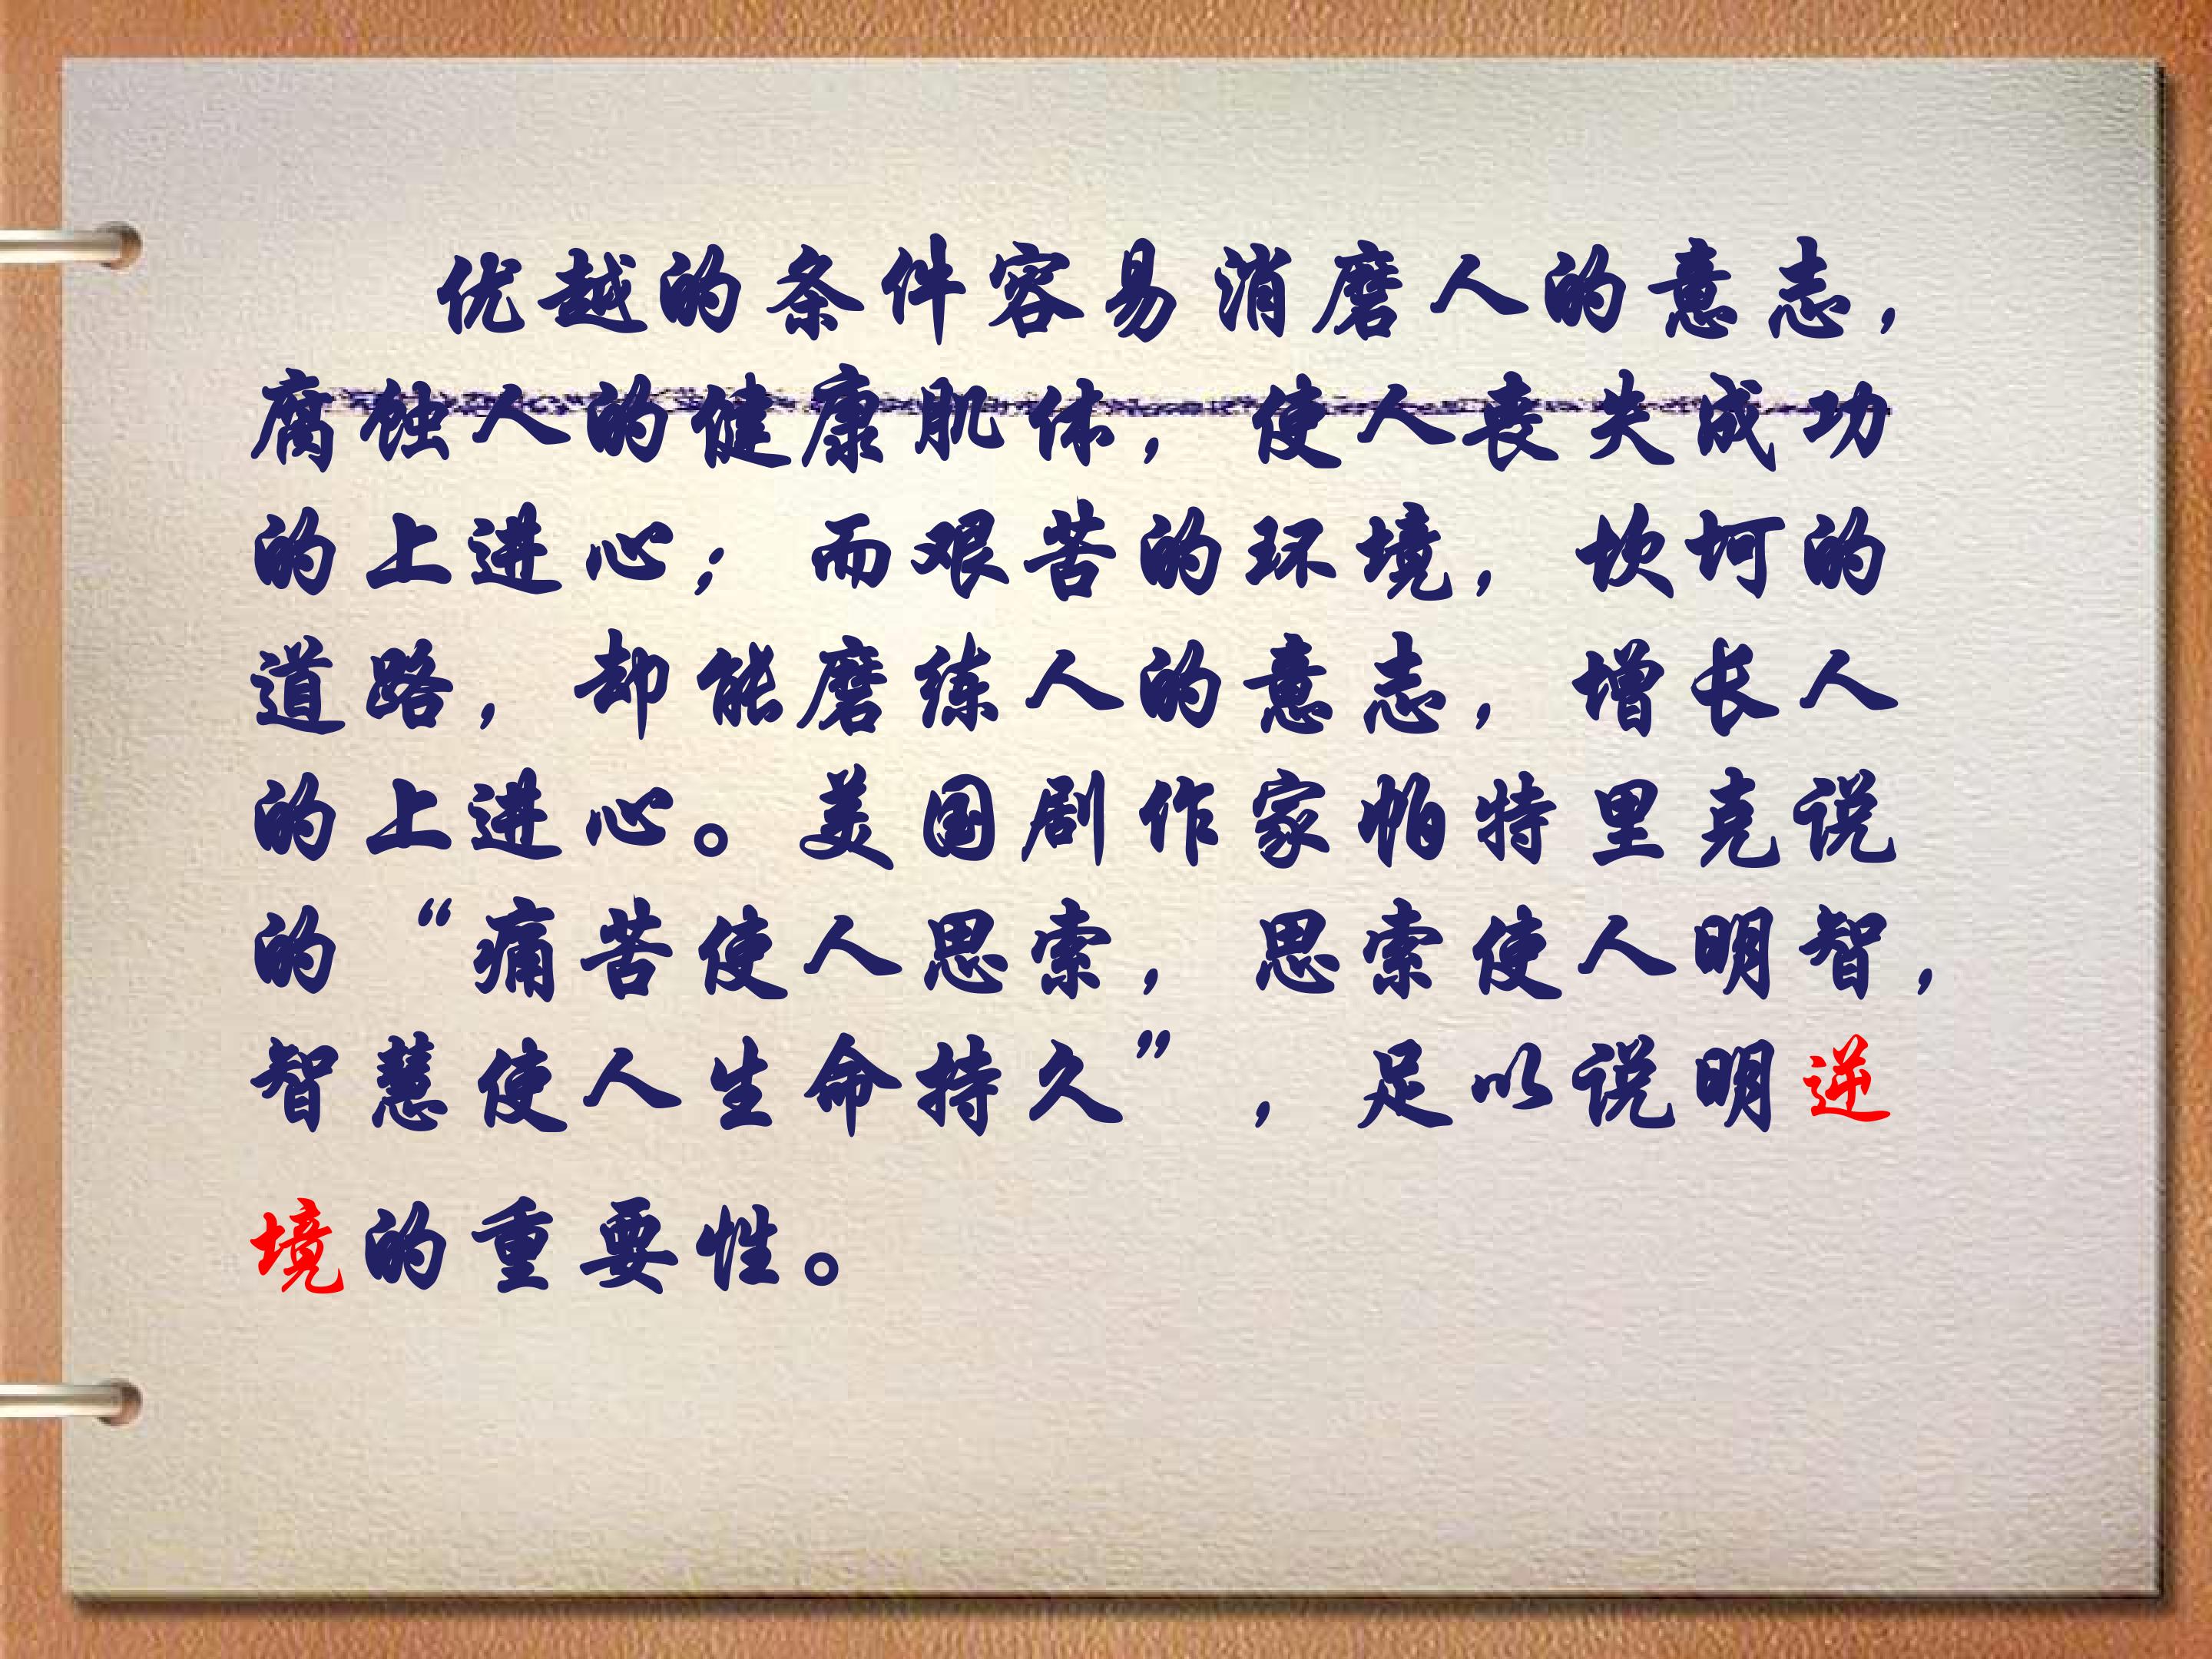 优越的条件容易消磨人的意志，
腐蚀人的健康肌体，使人丧失成功
的上进心；而艰苦的环境，坎坷的
道路，却能磨练人的意志，增长人
的上进心。美国剧作家帕特里克说
的“痛苦使人思索，思索使人明智，
智慧使人生命持久”，足以说明逆
境的重要性。